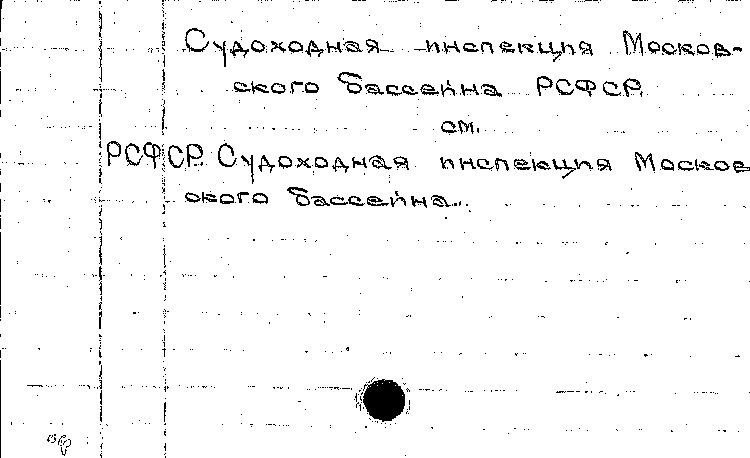 Судоходная инспекция Москов-
ского бассейна РСФСР
см.
РСФСР. Судоходная инспекция Москов
ского бассейна.